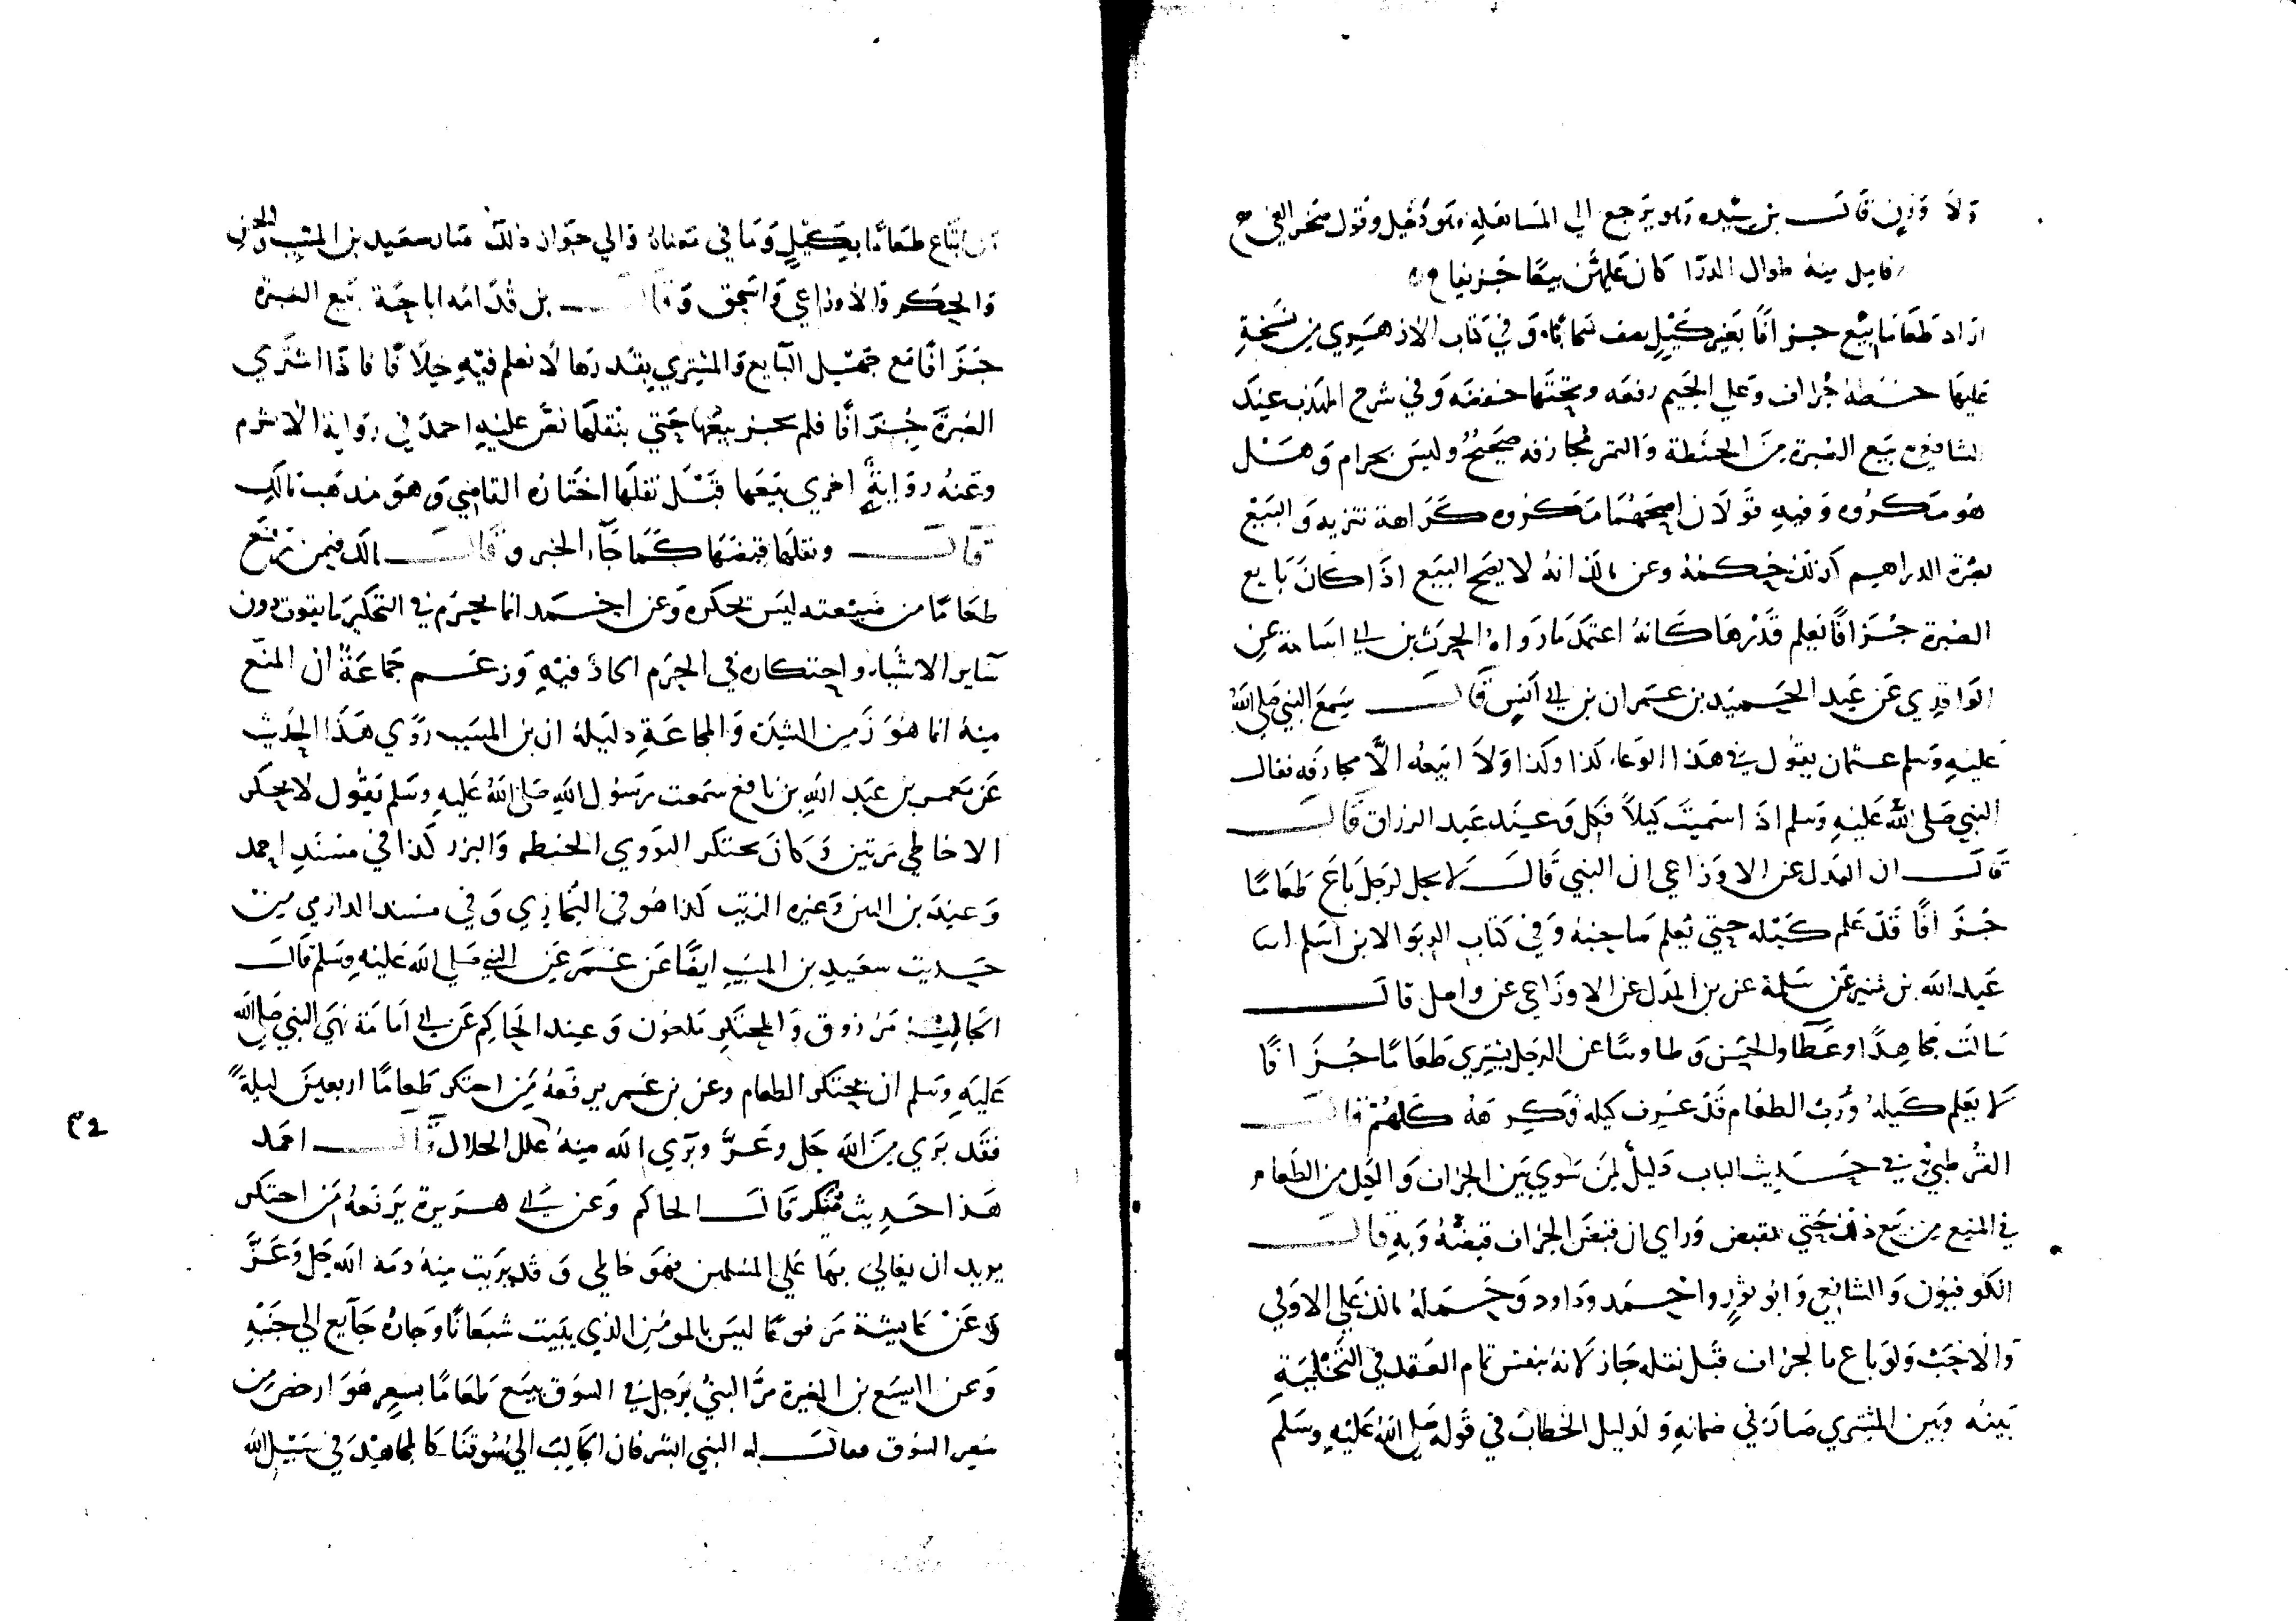 ولا وزن قال بن سيده وهو يرجع الي المساهلة وهو دخيل وقول صخر الغي ح
فاقبل منه طوال الذرا كان عليهن بيعا جزيفا ح
اراد طعاما بيع جزافا بغير كيل يصف سحابا وفي كتاب الازهيري من نسخة
عليها خطه جزاف وعلي الجيم رفعه وتحتها خفضه وفي شرح المهذب عند
الشافعي بيع الصبرة من الحنطة والتمر مجازفه صحيح وليس بحرام وهل
هو مكروه وفيه قولان اصحهما مكروه كراهة تنزيه والبيع
بصرة الدراهيم كذلك حكمه وعن مالك انه لا يصح البيع اذا كان بايع
الصبرة جزافا يعلم قدرها كانه اعتمد ما رواه الحرث بن ابي اسامة عن
الواقدي عن عبد الحميد بن عمران بن ابي انس قال سمع النبي صلى الله
عليه وسلم عثمان يقول في هذا الوعاء كذا وكذا ولا ابيعه الا مجازفه فقال
النبي صلى الله عليه وسلم اذا سميت كيلا فكل وعند عبد الرزاق قال
قال ان المبارك عن الاوزاعي ان النبي قال لا يحل لرجل باع طعاما
جزافا قد علم كيله حتي يعلم صاحبه وفي كتاب البيوع لابن اسلم
عبد الله بن نمير عن سلمة عن بن المبارك عن الاوزاعي عن واصل قال
سالت مجاهدا وعطا والحسن وطاوسا عن الرجل يشتري طعاما جزافا
لا يعلم كيله ورب الطعام قد عرف كيله فكرهه كلهم قال
القرطبي في حديث الباب دليل لمن سوي بين الجزاف والكيل من الطعام
في المنع من بيع ذلك حتي يقبض وراي ان قبض الجزاف قبضه وبه قال
الكوفيون والشافعي وابو ثور واحمد وداود وحمله مالك علي الاولي
والاحب ولو باع بالجزاف قبل نقله جاز لانه بنفس تمام العقد في التخلية
بينه وبين المشتري صار في ضمانه ولدليل الخطاب في قوله صلى الله عليه وسلم
من ابتاع طعاما بكيل وما في معناه والي جواز ذلك صار سعيد بن المسيب والحسن
والحكم والاوزاعي واسحق وقال بن قدامه اباحة بيع الصبرة
جزافا مع جهل البايع والمشتري بقدرها لا نعلم فيه خلافا فاذا اشتري
الصبرة جزافا فلم يجز بيعها حتي ينقلها نص عليه احمد في رواية الاثرم
وعنه رواية اخري بيعها قبل نقلها اختاره القاضي وهو مذهب مالك
قال ونقلها قبضها كما جاء الخبر وقال مالك فيمن يرفع
طعاما من ضيعته ليس بحكره وعن احمد انما يحرم في التحكير ما يقوت دون
ساير الاشياء واحتكاره في الحرم الحاد فيه وزعم جماعة ان المنع
منه انما هو زمن الشدة والمجاعة دليله ان بن المسيب روي هذا الحديث
عن معمر بن عبد الله بن نافع سمعت رسول الله صلى الله عليه وسلم يقول لا يحتكر
الا خاطي مرتين وكان يحتكر النووي الحنطه والبزر كذا في مسند احمد
وعند بن البر وغيره الزيت كذا هو في الترمذي وفي مسند الدارمي من
حديث سعيد بن المسيب ايضا عن عمر عن النبي صلى الله عليه وسلم قال
الجالب مرزوق والمحتكر ملعون وعند الحاكم عن ابي امامة نهي النبي صلى الله
عليه وسلم ان يحتكر الطعام وعن بن عمر يرفعه من احتكر طعاما اربعين ليلة
فقد بري من الله جل وعز وبري الله منه علل الخلال قال احمد
هذا حديث منكر قال الحاكم وعن ابي هريرة يرفعه من احتكر
يريد ان يغالي بها علي المسلمين فهو خاطي وقد بريت منه ذمة الله جل وعز
وعن عايشة مرفوعا ليس بالمومن الذي يبيت شبعانا وجاره جايع الي جنبه
وعن اليسع بن المغيرة مر النبي برجل في السوق يبيع طعاما بسعر هو ارخص من
سعر السوق فقال له النبي ابشر فان الجالب الي سوقنا كالمجاهد في سبيل الله
٤٢